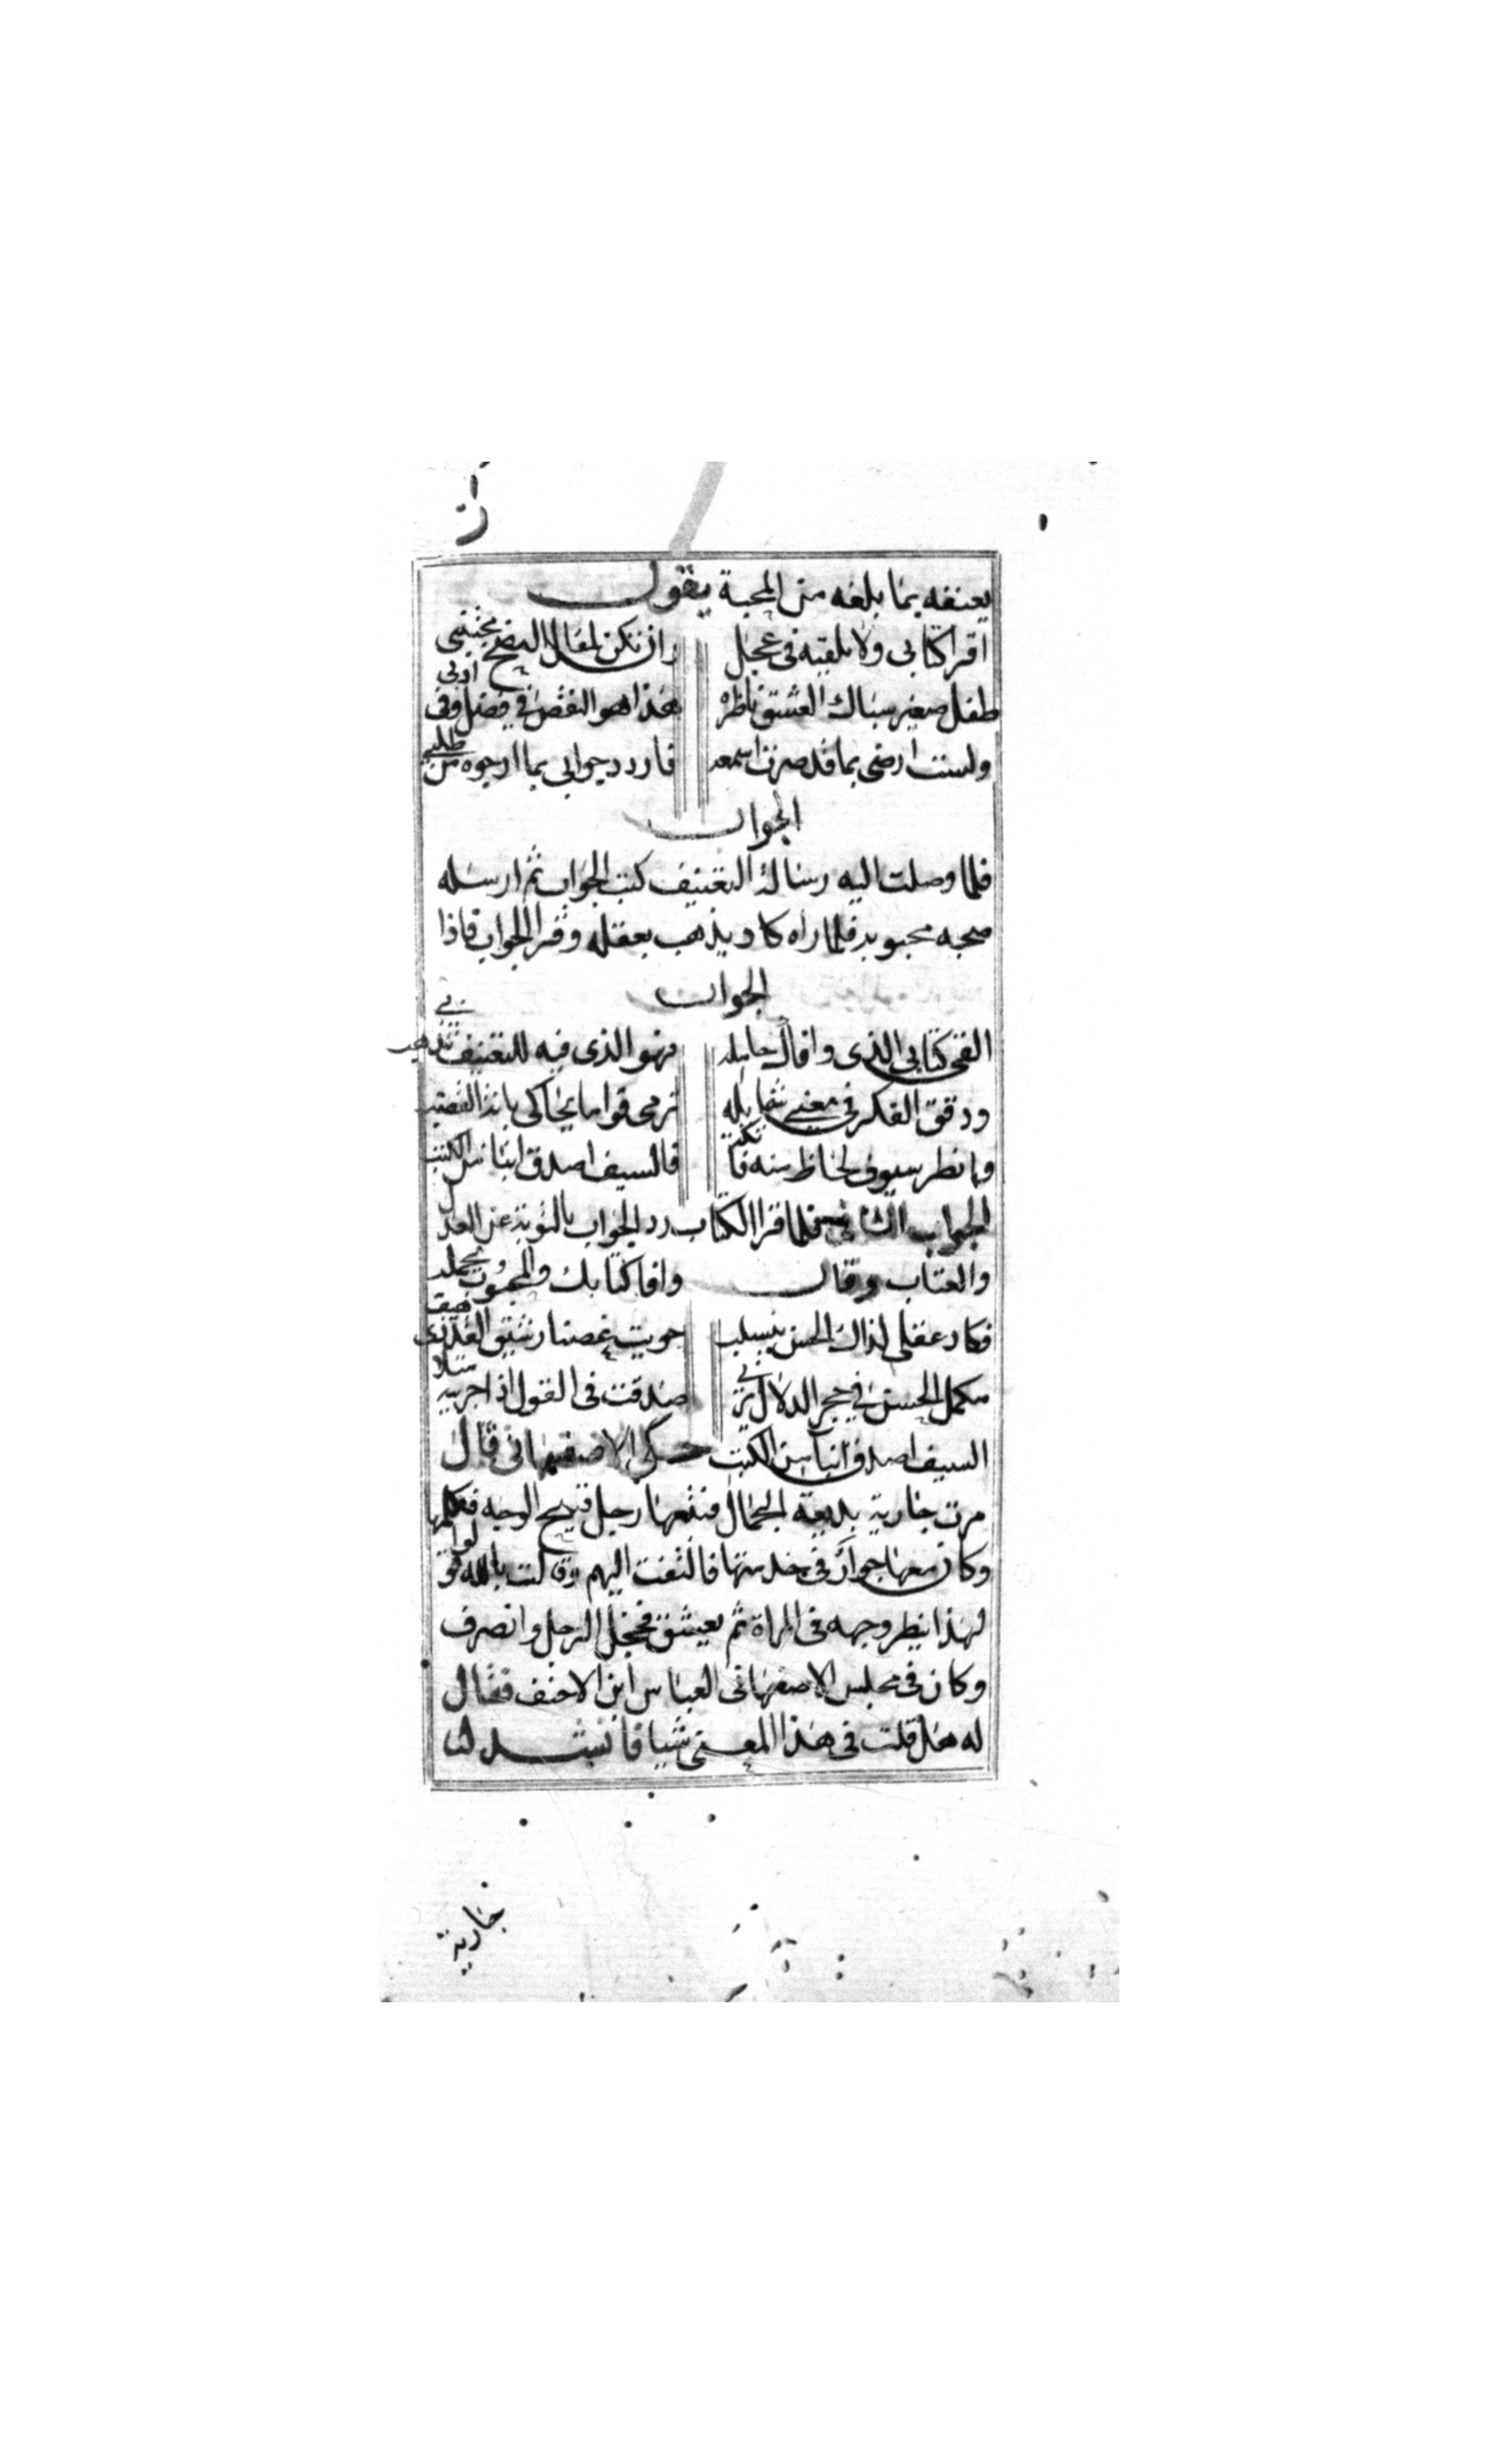 يعنفه بما بلغه من المحبة يقول
اقرا كتابى ولا تلقيه فى عجل وان تكن لمقال النصح تجتنبى
طفل صغير سباك العشق ناظره هذا هو النقص فى فضل وفى ادبى
ولست ارضى بما قد صرت اسمعه فاردد جوابى بما ارجوه من طلبى
الجواب
فلما وصلت اليه رسالة التعنيف كتب الجواب ثم ارسله
صحبه محبوبه فلما راه كاد يذهب بعقله وقرا الجواب فاذا
الجواب
الق كتابى الذى وافاك حامله فهو الذى فيه للتعنيف تذهب بى
ودقق الفكر فى معنى شمايله ترمى قواما يحاكى القضب
وانظر سيوف لحاظ منه فاتكة فالسيف اصدق انباء من الكتب
الجواب الثانى فلما قرا الكتاب رد الجواب بالتوبة عن العذل
والعتاب وقال وافا كتابك والمحبوب يحمله
فكاد عقلى لذاك الحسن ينسلب حويت غصنا رشيق القد ذى هيف
مكمل الحسن فى حجر الدلال ربى صدقت فى القول اذ اجريته مثلا
السيف اصدق انباء من الكتب حكى الاصفهانى قال
مرت جارية بديعة الجمال فتبعها رجل قبيح الوجه فكلمها
وكان معها جوار فى خدمتها فالتفت اليهم وقالت بالله قولوا
لهذا ينظر وجهه فى المراة ثم يعشق فخجل الرجل وانصرف
وكان فى مجلس الاصفهانى العباس ابن الاحنف فقال
له هل قلت فى هذا المعنى شيا فانشد لنا
جارية